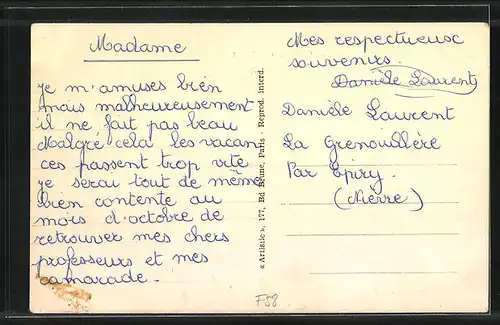 Madame
je m'amuses bien
mais malheureusement
il ne fait pas beau
Malgré cela les vacan
ces passent trop vite
je serai tout de même
bien contente au
mois d'octobre de
retrouver mes chers
professeurs et mes
camarade.
« Artistic », 177, Bd Brune, Paris - Reprod. interd.
Mes respectueux
souvenirs.
Danièle Laurent
Danièle Laurent
La Grenouillère
Par Epiry
(Nièvre)
F58